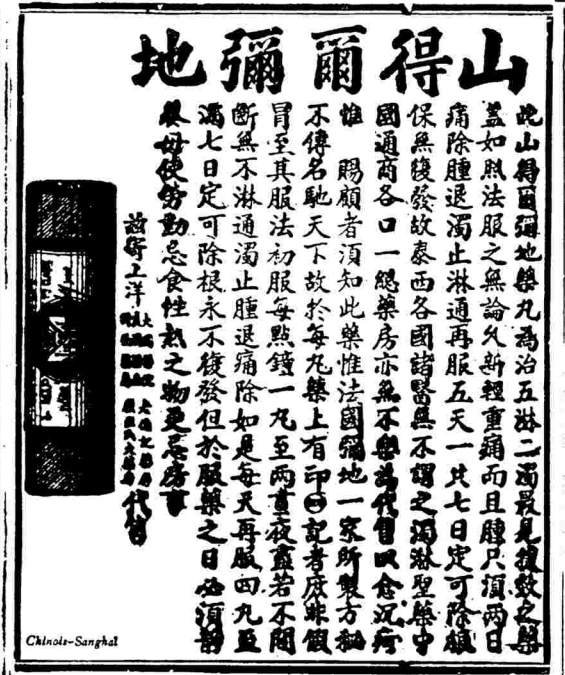 山得爾彌地
此山得爾彌地藥丸為治五淋二濁最見捷效之藥
蓋如照法服之無論久新輕重痛而且腫只須兩日
痛除腫退濁止淋通再服五天一共七日定可除根
保無復發故泰西各國諸醫無不謂之濁淋聖藥中
國通商各口一總藥房亦無不樂為代售以愈沉疴
惟 賜顧者須知此藥惟法國彌地一家所製方秘
不傳名馳天下故於每丸藥上有印㊀記者庶非假
冒至其服法初服每點鐘一丸至兩晝夜盡若不間
斷無不淋通濁止腫退痛除如是每天再服四丸至
滿七日定可除根永不復發但於服藥之日必須靜
養毋使勞動忌食性熱之物更忌房事
茲寄上洋
代售
Chinois-Sanghai